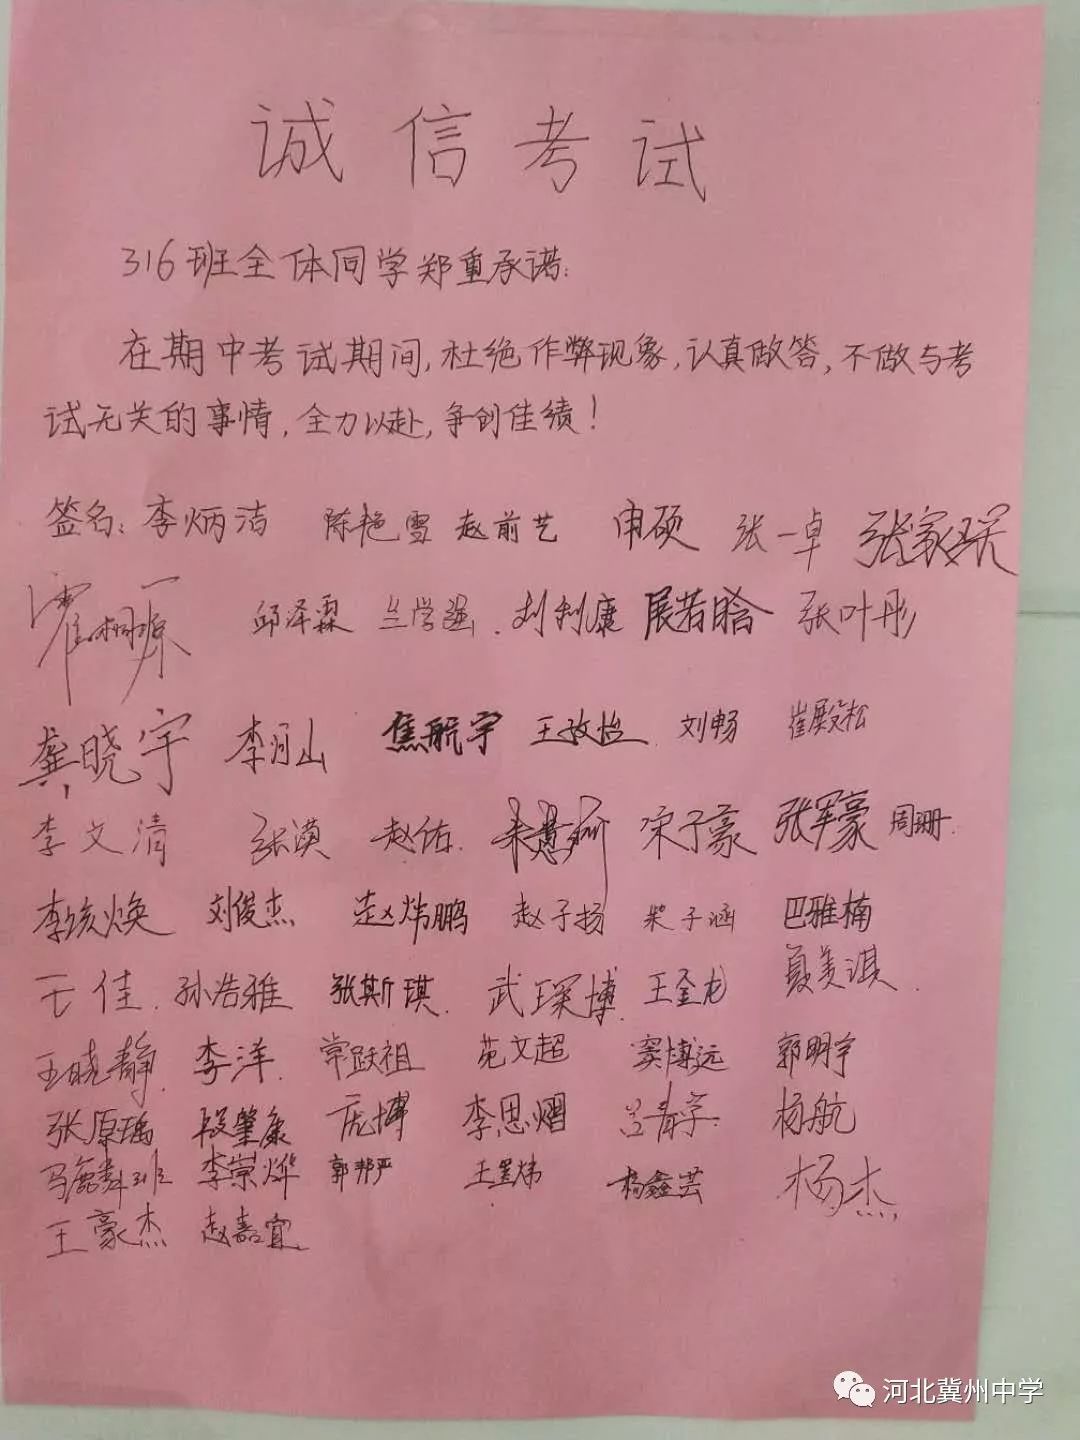 诚信考试
316班全体同学郑重承诺:
在期中考试期间,杜绝作弊现象,认真做答,不做与考
试无关的事情,全力以赴,争创佳绩!
签名:李炳洁 陈艳雪 赵前艺 申硕 张一卓 张家琛
邱泽霖 兰学强. 刘利康 展若晗 张叶彤
龚晓宇 李河山 焦航宇 王孜怡. 刘畅 崔殿松
李文清 张漠 赵佑. 朱慧 宋子豪 张军豪 周珊.
李焕 刘俊杰 赵炜鹏 赵子扬 柴子涵 巴雅楠
王佳. 孙浩雅 张斯琪. 武琛博. 王金龙 夏美淇.
王晓静. 李洋. 常跃祖 苑文超 窦博远 郭明宇
张原瑀 段肇康 庞博 李思熠 吕青学. 杨航
李崇烨 郭邦严 王昱炜 杨鑫芸 杨杰
王豪杰 赵嘉宜
河北冀州中学